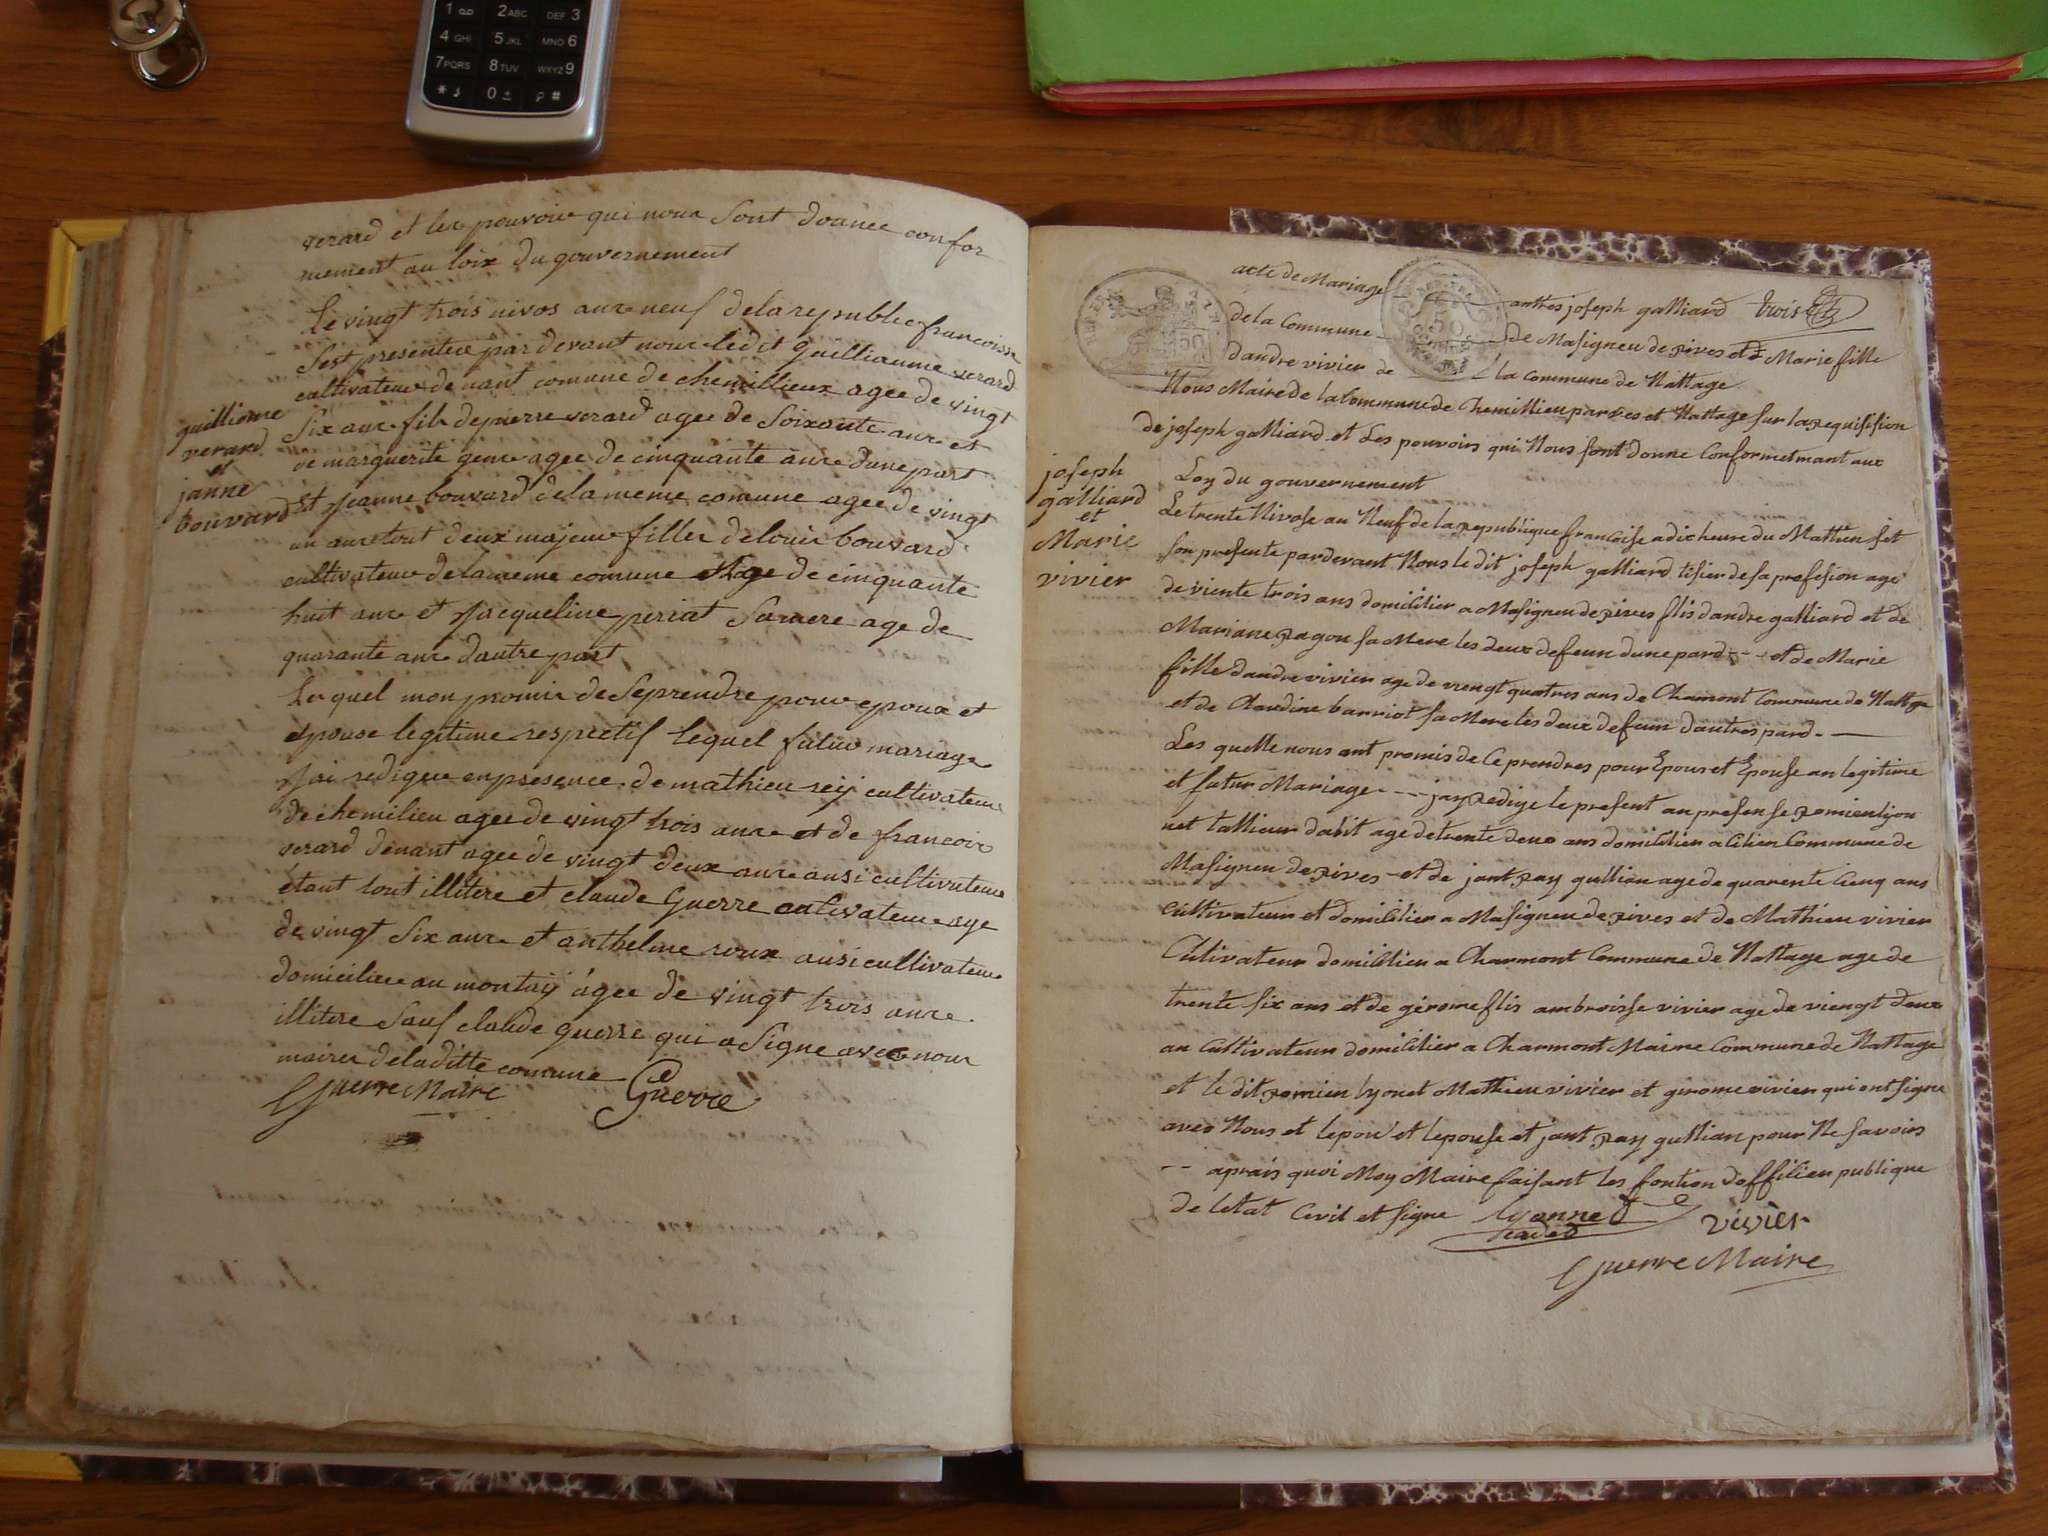 1
2 ABC
DEF 3
4 GHI
5 JKL
MNO 6
7 PQRS
8 TUV
WXYZ 9
*
0 ±
#
verard et les pouvoire qui nous sont donnee confor
mement au loix du gouvernement
Le vingt trois nivos ans neuf de la republic francoisse
sest presentere par devant nous ledit guilliaume verard
cultivateur de nant comune de chemillieux agee de vingt
six ans fils de pierre verard agee de soixante ans et
de marguerite gene agee de cinquante ans dune part
guilliome
verard
et
janne
bouvard
et jeanne bouvard de la meme comune agee de vingt
un ans tout deux majeur filler de louis bouvard
cultivateur de la meme comune age de cinquante
huit ans et jacqueline periat sa mere age de
quarante ans dautre part
Les quel mon promis de se prendre pour epoux et
epouse legitime respectif lequel futur mariage
jai redigee en presence de mathieu reij cultivateur
de chemilieu agee de vingt trois ans et de francois
verard denant agee de vingt deux ans ausi cultivateur
étant tout illitere et claude Guerre cultivateur age
de vingt six ans et anthelme roux ausi cultivateur
domiciliee au montaij agee de vingt trois ans
illitere sauf claude guerre qui a signe avec nous
maires de la ditte comune
Guerre Maire Guerre
acte de Mariage antres joseph galliard trois
de la Commune de Masigneu de rives et de Marie fille
dandre vivier de la commune de Nattage
50
Nous Maire de la Commune de Chemillieu parves et Nattage sur la requisision
de joseph galliard et les pouvoirs qui Nous sont donne Conformetmant aux
Loy du gouvernement
joseph
galliard
et
Marie
vivier
Le trente Nivose au Neuf de la republique francaise a dix heure du Mattien set
son presente pardevant Nous le dit joseph galliard tisier de sa profesion age
de viente trois ans domilitier a Masigneu de rives flis dandre galliard et de
Mariane ragon sa Mere les deux defeun dune pard -- et de Marie
fille dandre vivier age de viengt quatres ans de Chamont Commune de Nattage
et de Claudine barriot sa Mere les deux defeun dautres pard
Les quelle nous ont promis de Ce prendres pour Epous et Epouse an legitime
et futur Mariage --- jay redige le present an presense romien lyon
net tallieur dabit age de trente deux ans domicilier a Cilien Commune de
Masigneu de rives et de jant ray gullian age de quarente Cienq ans
Cultivateur et domicilier a Masigneu de rives et de Mathieu vivier
Cultivateur domicilier a Charmont Commune de Nattage age de
trente six ans et de gérome flis ambroisse vivier age de viengt deux
an Cultivateur domicilier a Charmont Maime Commune de Nattage
et le dit romien lyonet Mathieu vivier et girome vivier qui ont signe
avec Nous et lepou et lepouse et jant ray gullian pour Ne savoirs
-- aprais quoi Moy Maire faisant les fontion doffilien publique
de letat Civil et signe Lyonned vivier
Guerre Maire